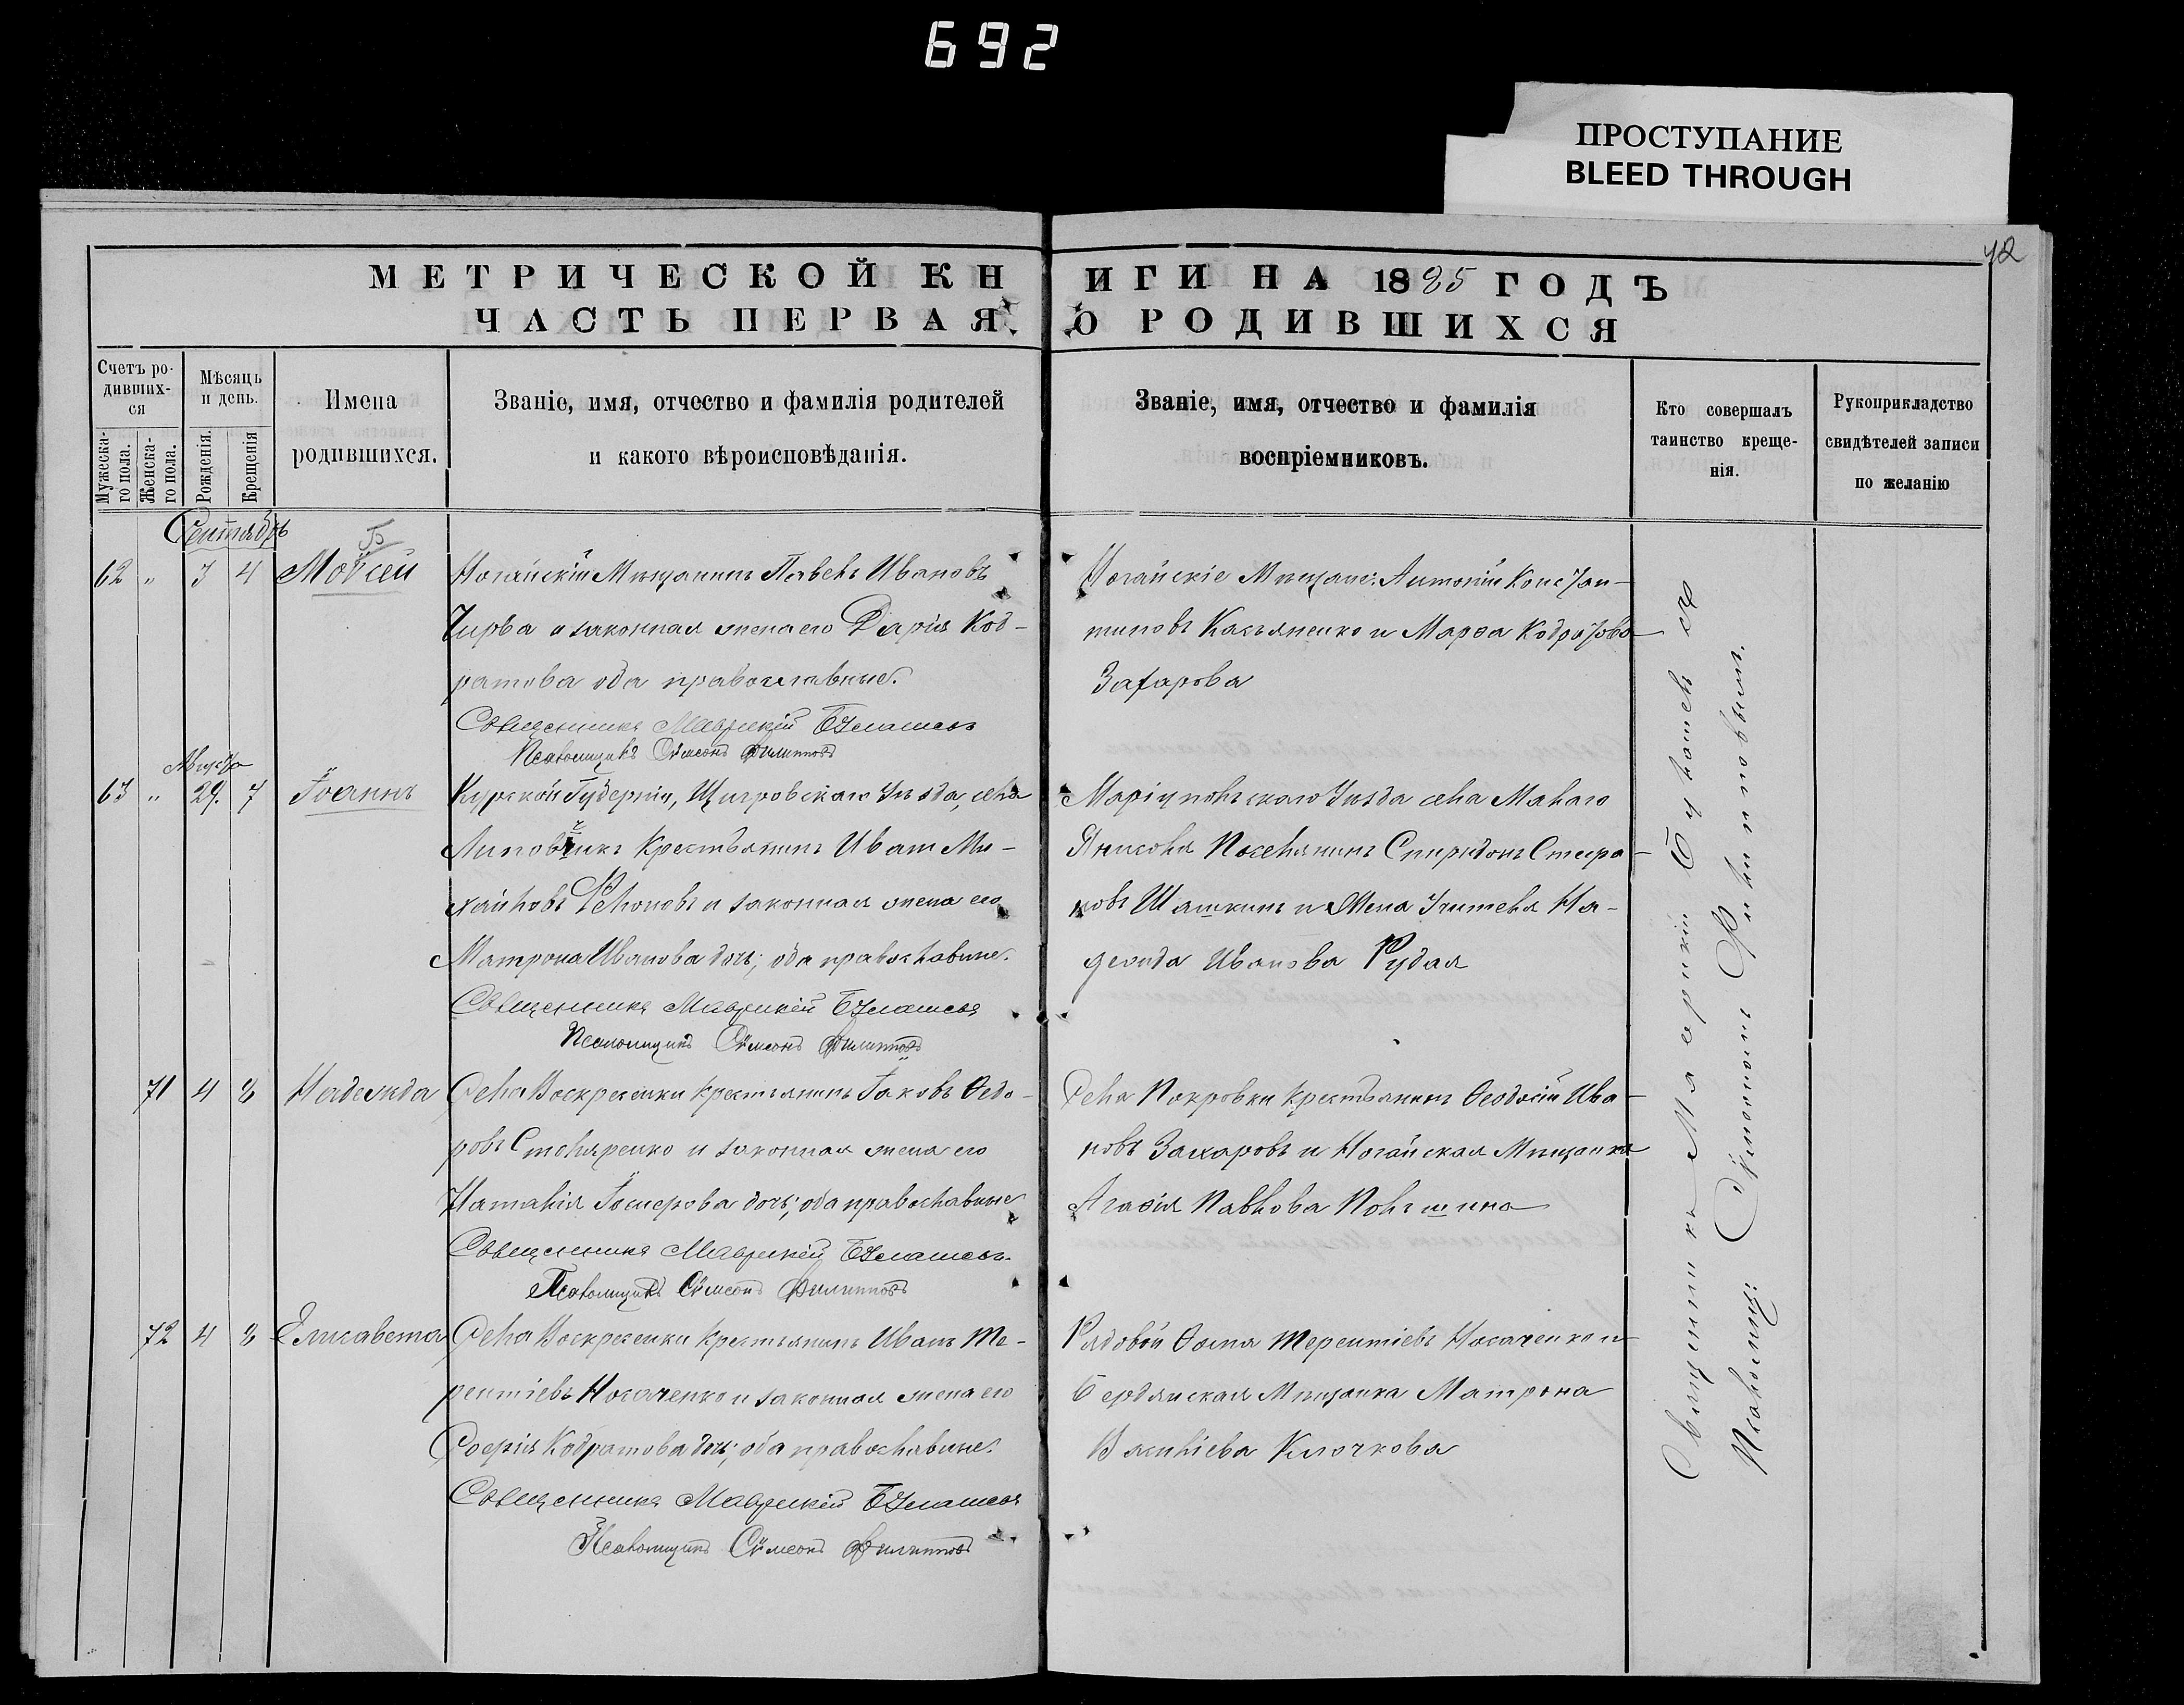 692
ПРОСТУПАНИЕ
BLEED THROUGH
42
МЕТРИЧЕСКОЙ КНИГИ НА 1885 ГОДЪ
ЧАСТЬ ПЕРВАЯ. О РОДИВШИХСЯ
Счетъ ро-
дивших-
ся
Мужеска-
го пола.
Женска-
го пола.
Мѣсяцъ
и день.
Рожденія.
Крещенія
Имена
родившихся.
Званіе, имя, отчество и фамилія родителей
и какого вѣроисповѣданія.
Званіе, имя, отчество и фамилія
воспріемниковъ.
Кто совершалъ
таинство креще-
нія.
Рукоприкладство
свидѣтелей записи
по желанію
Сентябрь
62 " 3 4 Мовсей
Ногайскій Мѣщанинъ Павелъ Ивановъ
Чирва и законная жена его Дарія Код-
ратова оба православные.
Священникъ Маврикій
Псаломщикъ Сѵмеонъ Филипповъ
Ногайскіе Мѣщане: Антоній Констан-
тиновъ Касьяненко и Марѳа Кодратова
Захарова
Августа
63 " 29. 7 Іоаннъ
Курской Губерніи, Щигровскаго Уѣзда, села
Липовчикъ Крестьянинъ Иванъ Ми-
хайловъ и законная жена его
Матрона Иванова дочь; оба православные.
Священникъ Маврикій
Псаломщикъ Сѵмеонъ Филипповъ
Маріупольскаго Уѣзда села Малаго
Янисоля Поселянинъ Спиридонъ
новъ Шашкинъ и Жена Учителя На-
дежда Иванова Рудая
71 4 8 Надежда
Села Воскресенки Крестьянинъ Іаковъ Ѳедо-
ровъ Столяренко и законная жена его
Наталія дочь; оба православные
Священникъ Маврикій
Псаломщикъ Сѵмеонъ Филипповъ
Села Покровки Крестьянинъ Ѳеодосій Ива-
новъ Захаровъ и Ногайская Мѣщанка
Агаѳія Павлова
72 4 8 Елисавета
Села Воскресенки Крестьянинъ Иванъ Те-
рентіевъ Носаченко и законная жена его
Софія Кодратова дочь; оба православные.
Священникъ Маврикій
Псаломщикъ Сѵмеонъ Филипповъ
Рядовой Ѳома Терентіевъ Носаченко и
Бердянская Мѣщанка Матрона
Василіева Клочкова
Священникъ Маврикій
Псаломщ: Сѵмеонъ Филипповъ.